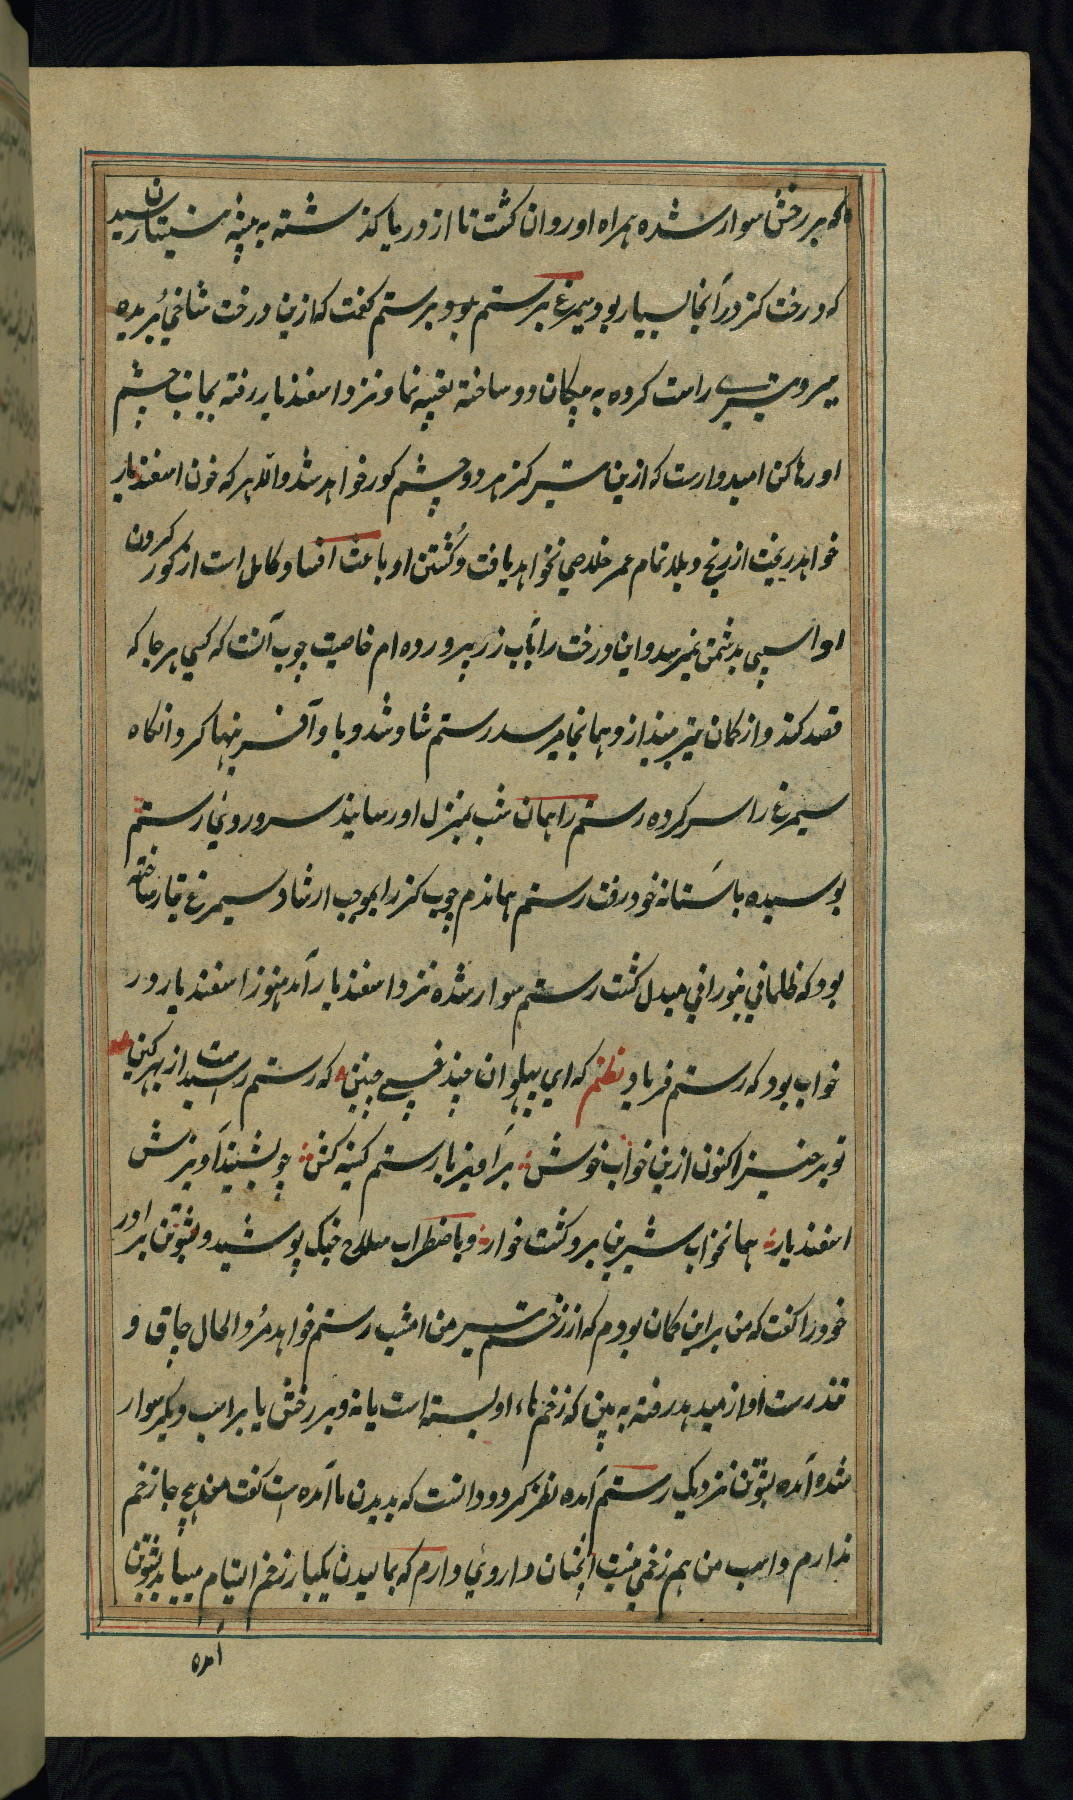 که بر رخش سوار شده همراه او روان گشت تا از دریا گذشته به بیشه سیستان رسید
که درخت کز در آنجا بسیار بود سیمرغ برستم بود برستم گفت که ازین درخت شاخی بریده
راست کرده به پیکان دو ساخته تعبیه نما و نزد اسفندیار رفته بجانب چشم
او رها کن امیدوارست که ازین تیر کز هر دو چشم کور خواهد شد والله هر که خون اسفندیار
خواهد ریخت از رنج و بلا تمام عمر خلاصی نخواهد یافت و کشتن او باعث افساد کامل است از کور کردن
او اسیبی بدشمن نمیرسد و این درخت را بآب زر پرورده ام خاصیت چوب آنست که کسی هر جا که
قصد کند و از کمان تیر بیندازد همانجا میرسد رستم شاد شد و با و آفرینها کرد انگاه
سیمرغ را سر کرده رستم را همان شب بمنزل او رسانید سر و روی رستم
بوسیده باستانه خود رفت رستم هماندم چوب کز را بموجب ارشاد سیمرغ تیار ساخته
بود که ظلمانی بنورانی مبدل گشت رستم سوار شده نزد اسفندیار آمد هنوز اسفندیار در
خواب بود که رستم فریاد نظم که ای پهلوان چند خسپی چنین که رستم رسیدست از بهر کین
تو برخیز اکنون ازین خواب خوش بر آویز با رستم کینه کش چو بشنید آوازش
اسفندیار همانخواب شیرین برو گشت خوار و باضطراب سلاح جنگ پوشید و بشوتن برادر
خود را گفت که من براین گمان بودم که از زخم تیر من امشب رستم خواهد مرد الحال چاق و
تندرست آواز میدهد رفته به بین که زخم هاء او بسته است یا نه و بر رخش یا بر اسب دیگر سوار
شده آمده بشوتن نزدیک رستم آمده نظر کرد و دانست که بدیدن ما آمده است گفت من هیچ جا زخم
ندارم و اسب من هم زخمی نیست انچنان داروی دارم که بمالیدن یکبار زخم التیام مییابد بشوتن
آمده